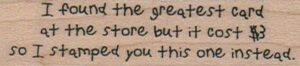 I found the greatest card
at the store but it cost $3
so I stamped you this one instead.